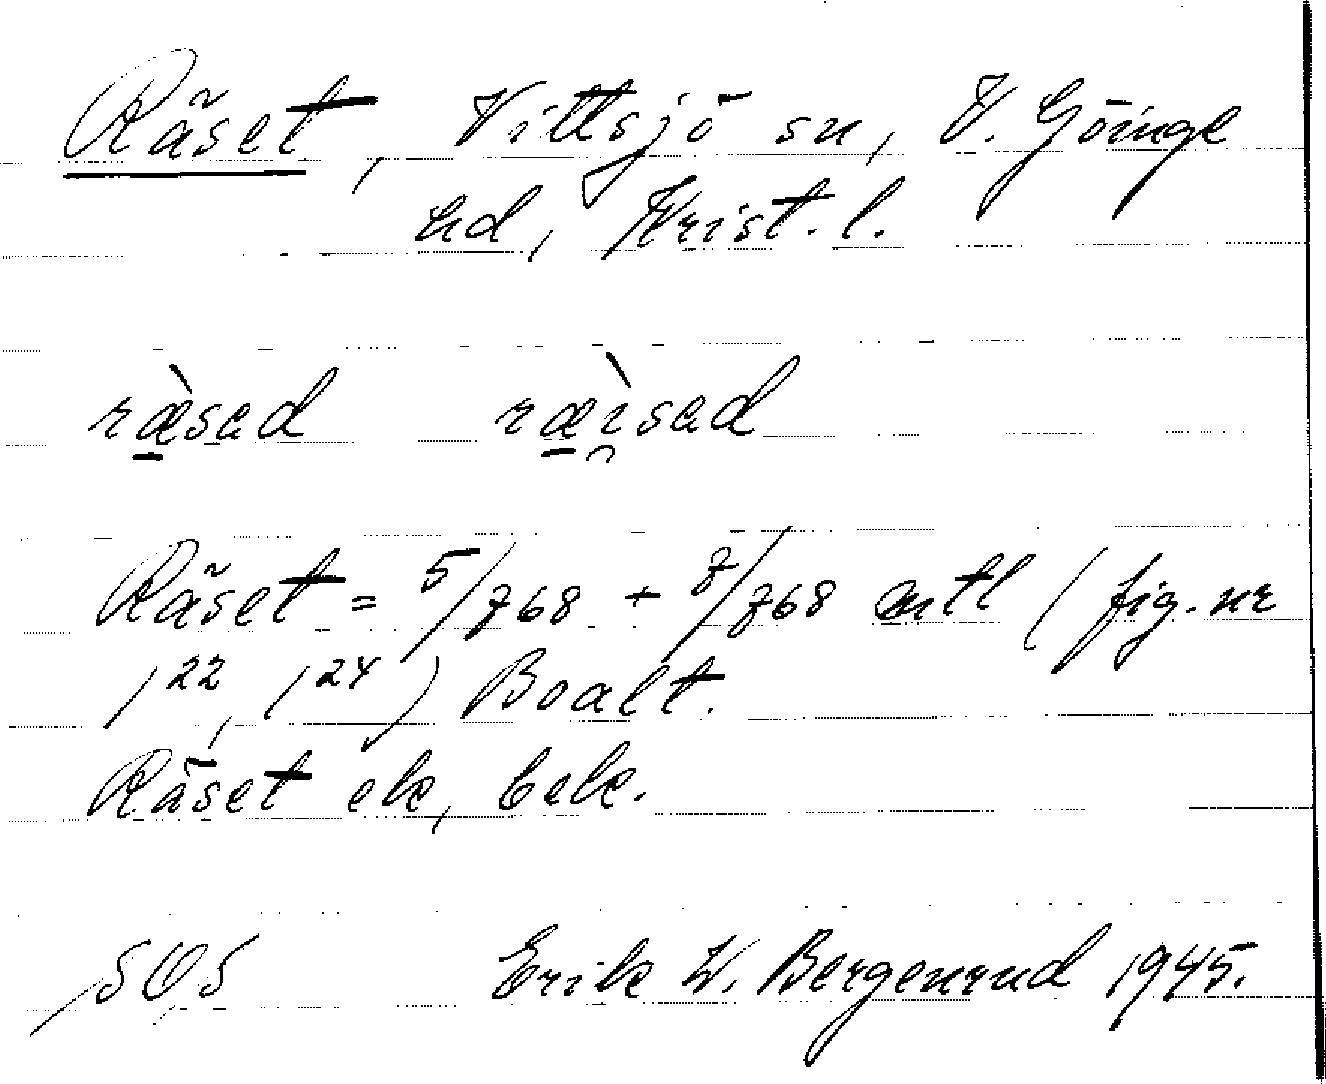 Räset, Vittsjö sn, V. Göinge
hd, Krist. l.
ræ̀sad ræ̀i̯sad
Räset = 5/768 + 8/768 mtl (fig. nr
1²², 1²⁴) Boalt.
Räset ek, bek.
SOS Erik W. Bergenrud 1945.